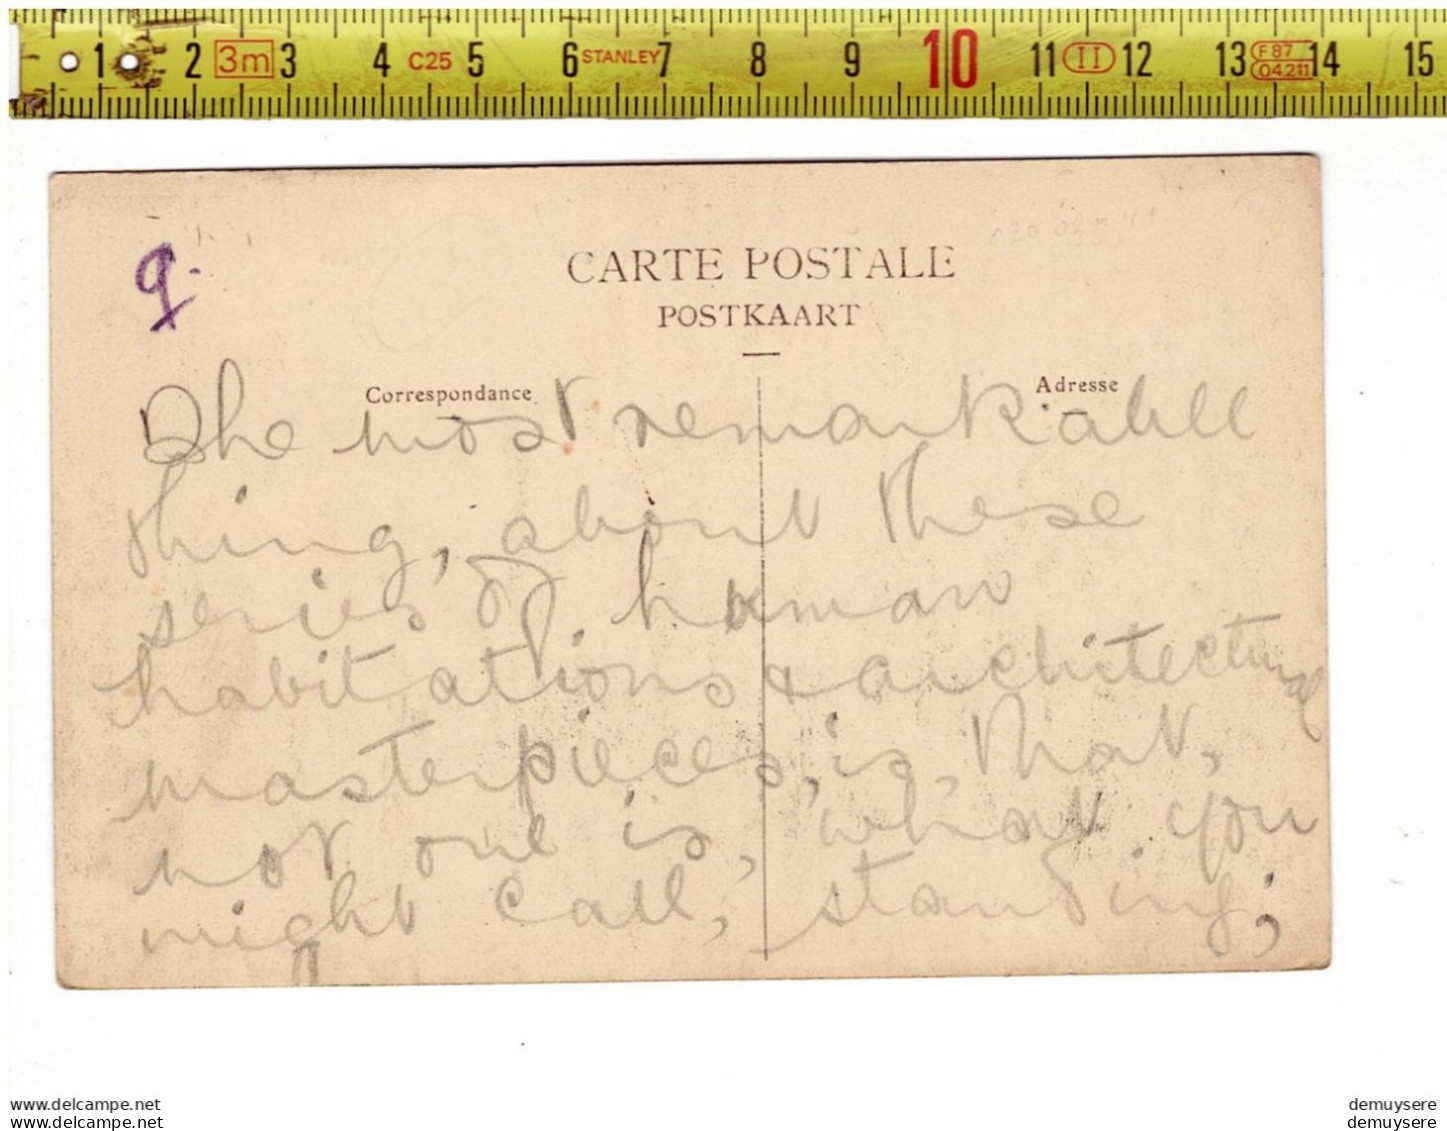 1 2 3m 3 4 C25 5 6 STANLEY 7 8 9 10 11 II 12 13 F 87 04.211 14 15
9.
CARTE POSTALE
POSTKAART
Correspondance
Adresse
The most remarkable
thing, about these
series of human
habitations & architectural
masterpieces, is, that,
not one is, what you
might call, standing;
www.delcampe.net
www.delcampe.net
demuysere
demuysere